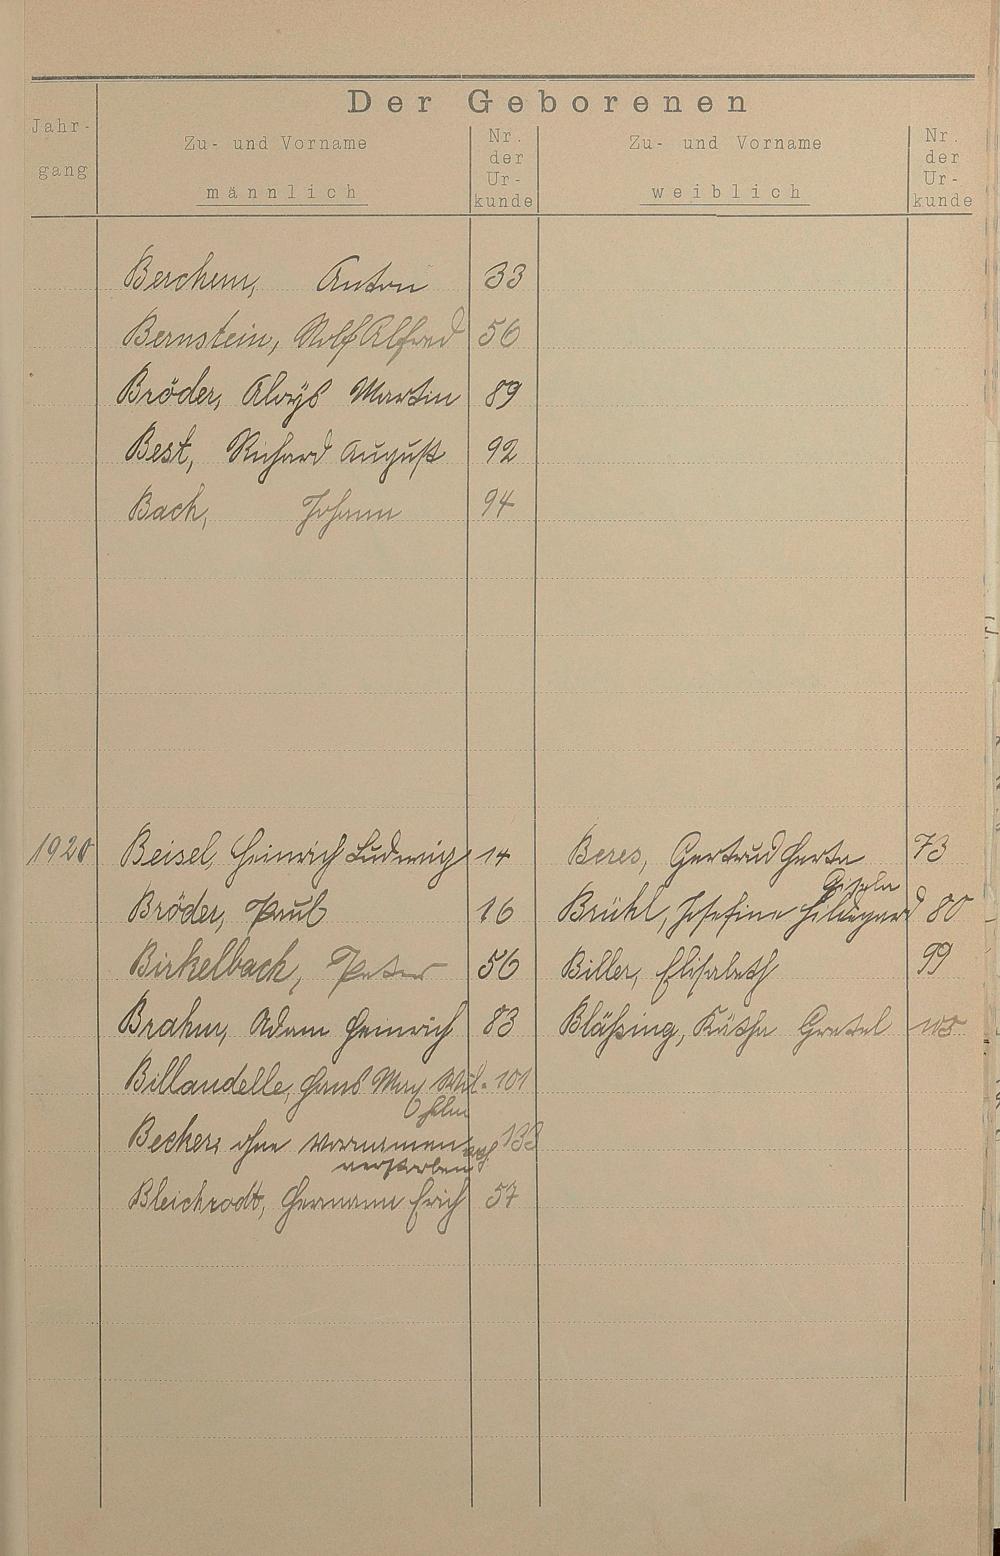 Der Geborenen
Jahr-
gang
Zu- und Vorname
männlich
Nr.
der
Ur-
kunde
Zu- und Vorname
weiblich
Nr.
der
Ur-
kunde
Berchem, Anton 33
Bernstein, Rolf Alfred 56
Bröder, Aloys Martin 89
Best, Richard August 92
Bach, Johann 94
1920 Beisel, Heinrich Ludwig 14 Beres, Gertrud Herta 73
Gisela
Bröder, Paul 16 Brühl, Josefine Hildegard 80
Birkelbach, Peter 56 Biller, Elisabeth 99
Brahm, Adam Heinrich 83 Bläßing, Käthe Gretel 105
Billaudelle, Hans May Wil- 101
helm
Becker, ohne Vornamen 133
verstorben
Bleichrodt, Hermann Erich 57